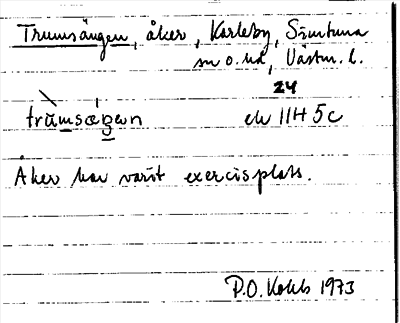 Trumsängen, åker, Karleby, Simtuna
sn o. hd, Västm. l.
24
trùmsæŋen ek 11H 5c
Åker har varit exercisplats.
P.O. Kolls 1973